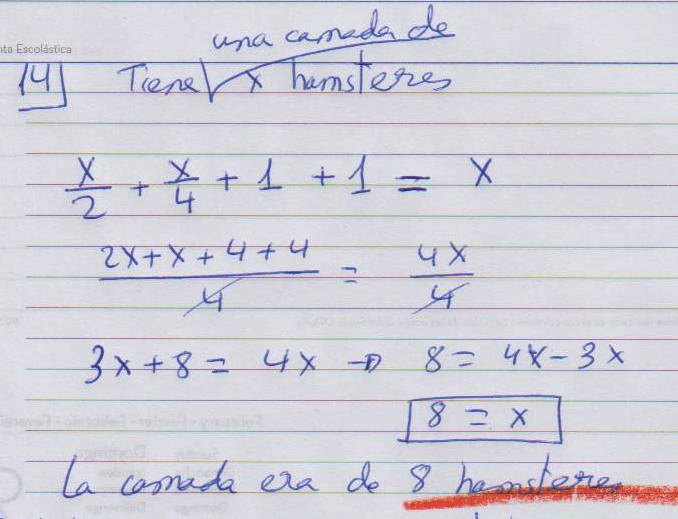 nta Escolástica
una camada de
14 Tiene x hamsteres
x/2 + x/4 + 1 + 1 = x
2x+x+4+4/4 = 4x/4
3x+8 = 4x → 8 = 4x-3x
8 = x
La camada era de 8 hamsteres